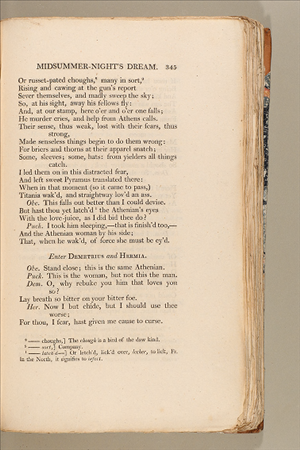 MIDSUMMER-NIGHT'S DREAM. 345
Or russet-pated choughs,⁸ many in sort,⁹
Rising and cawing at the gun's report
Sever themselves, and madly sweep the sky;
So, at his sight, away his fellows fly:
And, at our stamp, here o'er and o'er one falls;
He murder cries, and help from Athens calls.
Their sense, thus weak, lost with their fears, thus
strong,
Made senseless things begin to do them wrong:
For briers and thorns at their apparel snatch;
Some, sleeves; some, hats: from yielders all things
catch.
I led them on in this distracted fear,
And left sweet Pyramus translated there:
When in that moment (so it came to pass,)
Titania wak'd, and straightway lov'd an ass.
Obe. This falls out better than I could devise.
But hast thou yet latch'd¹ the Athenian's eyes
With the love-juice, as I did bid thee do?
Puck. I took him sleeping,—that is finish'd too,—
And the Athenian woman by his side;
That, when he wak'd, of force she must be ey'd.
Enter DEMETRIUS and HERMIA.
Obe. Stand close; this is the same Athenian.
Puck. This is the woman, but not this the man.
Dem. O, why rebuke you him that loves you
so?
Lay breath so bitter on your bitter foe.
Her. Now I but chide, but I should use thee
worse;
For thou, I fear, hast given me cause to curse.
⁸ — choughs,] The chough is a bird of the daw kind.
⁹ — sort,] Company.
¹ — latch'd—] Or letch'd, lick'd over, lecher, to lick, Fr.
In the North, it signifies to infect.